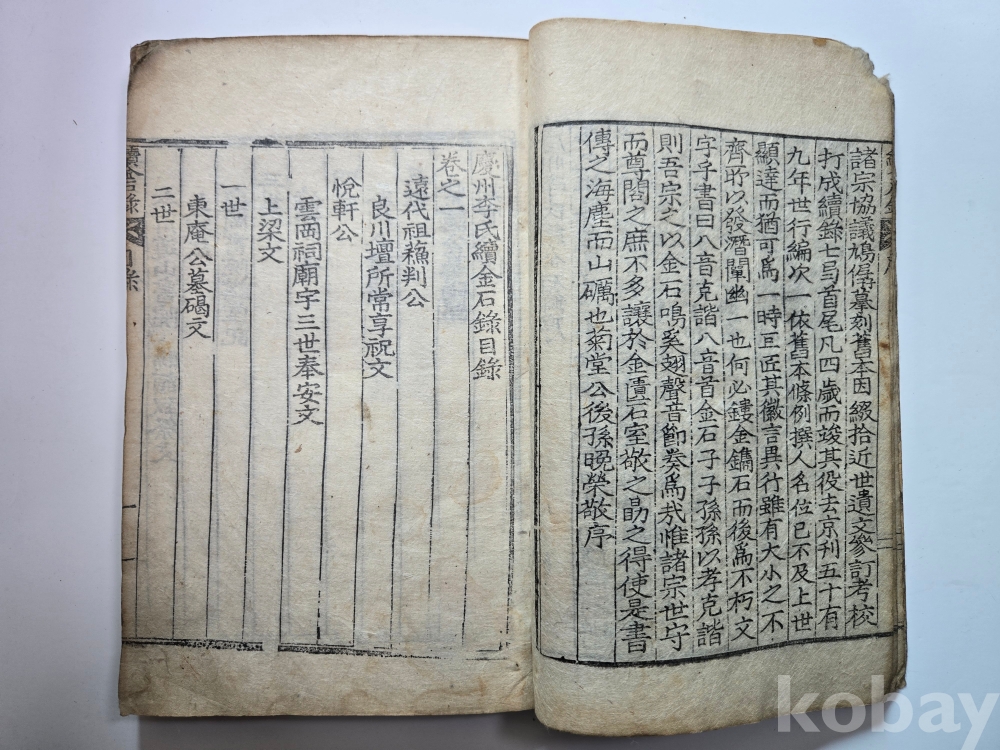 諸宗協議鳩倳摹刻舊本因綴拾近世遺文參訂考校
打成續錄七弓首尾凡四歲而竣其役去京刊五十有
九年世行編次一依舊本條例撰人名位已不及上世
顯達而猶可爲一時巨匠其徽言異行雖有大小之不
齊所以發潛闡幽一也何必鏤金鐫石而後爲不朽文
字乎書曰八音克諧八音首金石子子孫孫以孝克諧
則吾宗之以金石鳴奚翅聲音節奏爲㢤惟諸宗世守
而尊閣之庶不多讓於金匱石室敬之勗之得使是書
傳之海塵而山礪也菊堂公後孫晩榮敬序
慶州李氏續金石錄目錄
卷之一
遠代祖䅵判公
良川壇所常享祝文
悅軒公
雲岡祠廟宇三世奉安文
上梁文
一世
東庵公墓碣文
二世
續金石錄 目錄
kobay